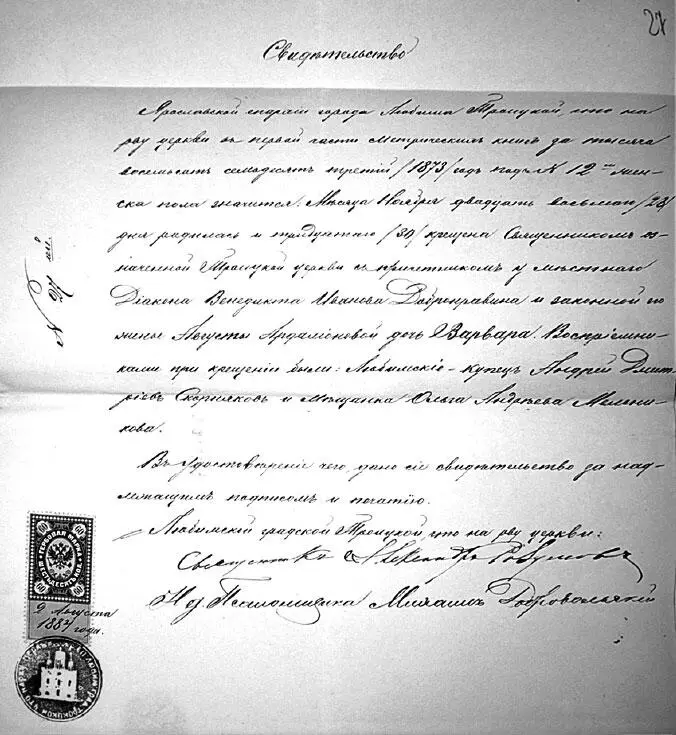 27
Свидѣтельство
Ярославской епархіи города Любима Троицкой, что на
рву церкви въ первой части Метрическихъ книгъ за тысяча
восемьсотъ семьдесятъ третій /1873/ годъ подъ № 12 жен-
ска пола значится: Мѣсяца Ноября двадцать восьмаго /28/
дня родилась и тридцатаго /30/ крещена Священникомъ оз-
наченной Троицкой церкви съ причетникомъ у мѣстнаго
Діакона Венедикта Иванова Добронравина и законной его
жены Августы Ардаліоновой дочь Варвара. Воспріемни-
ками при крещеніи были: Любимскіе - купецъ Андрей Дмит-
ріевъ Скорняковъ и Мѣщанка Ольга Андреева Мельни-
кова.
Въ удостовѣреніе чего дано сіе свидѣтельство за над-
лежащимъ подписомъ и печатію.
Любимской градской Троицкой что на рву церкви:
Священникъ Александръ
И. д. Псаломщика Михаилъ Добровольскій
№
60 60
60 60
9 Августа
1884 года.